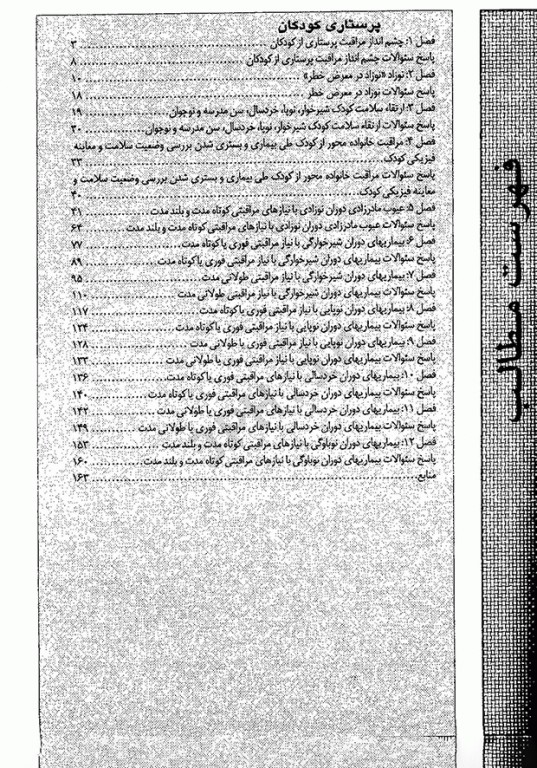 فهرست مطالب
پرستاری کودکان
فصل ۱: چشم انداز مراقبت پرستاری از کودکان ........ ۳
پاسخ سئوالات چشم انداز مراقبت پرستاری از کودکان ........ ۸
فصل ۲: نوزاد «نوزاد در معرض خطر» ........ ۱۰
پاسخ سئوالات نوزاد در معرض خطر ........ ۱۸
فصل ۳: ارتقاء سلامت کودک شیرخوار، نوپا، خردسال، سن مدرسه و نوجوان ........ ۱۹
پاسخ سئوالات ارتقاء سلامت کودک شیرخوار، نوپا، خردسال، سن مدرسه و نوجوان ........ ۳۰
فصل ۴: مراقبت خانواده محور از کودک طی بیماری و بستری شدن بررسی وضعیت سلامت و معاینه
فیزیکی کودک ........ ۳۳
پاسخ سئوالات مراقبت خانواده محور از کودک طی بیماری و بستری شدن بررسی وضعیت سلامت و
معاینه فیزیکی کودک ........ ۴۰
فصل ۵: عیوب مادرزادی دوران نوزادی با نیازهای مراقبتی کوتاه مدت و بلند مدت ........ ۴۱
پاسخ سئوالات عیوب مادرزادی دوران نوزادی با نیازهای مراقبتی کوتاه مدت و بلند مدت ........ ۶۴
فصل ۶: بیماریهای دوران شیرخوارگی با نیاز مراقبتی فوری یا کوتاه مدت ........ ۷۷
پاسخ سئوالات بیماریهای دوران شیرخوارگی با نیاز مراقبتی فوری یا کوتاه مدت ........ ۸۹
فصل ۷: بیماریهای دوران شیرخوارگی با نیاز مراقبتی طولانی مدت ........ ۹۵
پاسخ سئوالات بیماریهای دوران شیرخوارگی با نیاز مراقبتی طولانی مدت ........ ۱۱۰
فصل ۸: بیماریهای دوران نوپایی با نیاز مراقبتی فوری یا کوتاه مدت ........ ۱۱۷
پاسخ سئوالات بیماریهای دوران نوپایی با نیاز مراقبتی فوری یا کوتاه مدت ........ ۱۲۴
فصل ۹: بیماریهای دوران نوپایی با نیاز مراقبتی فوری یا طولانی مدت ........ ۱۲۸
پاسخ سئوالات بیماریهای دوران نوپایی با نیاز مراقبتی فوری یا طولانی مدت ........ ۱۳۳
فصل ۱۰: بیماریهای دوران خردسالی با نیازهای مراقبتی فوری یا کوتاه مدت ........ ۱۳۶
پاسخ سئوالات بیماریهای دوران خردسالی با نیازهای مراقبتی فوری یا کوتاه مدت ........ ۱۴۰
فصل ۱۱: بیماریهای دوران خردسالی با نیازهای مراقبتی فوری یا طولانی مدت ........ ۱۴۲
پاسخ سئوالات بیماریهای دوران خردسالی با نیازهای مراقبتی فوری یا طولانی مدت ........ ۱۴۹
فصل ۱۲: بیماریهای دوران نوباوگی با نیازهای مراقبتی کوتاه مدت و بلند مدت ........ ۱۵۳
پاسخ سئوالات بیماریهای دوران نوباوگی با نیازهای مراقبتی کوتاه مدت و بلند مدت ........ ۱۶۰
منابع ........ ۱۶۳